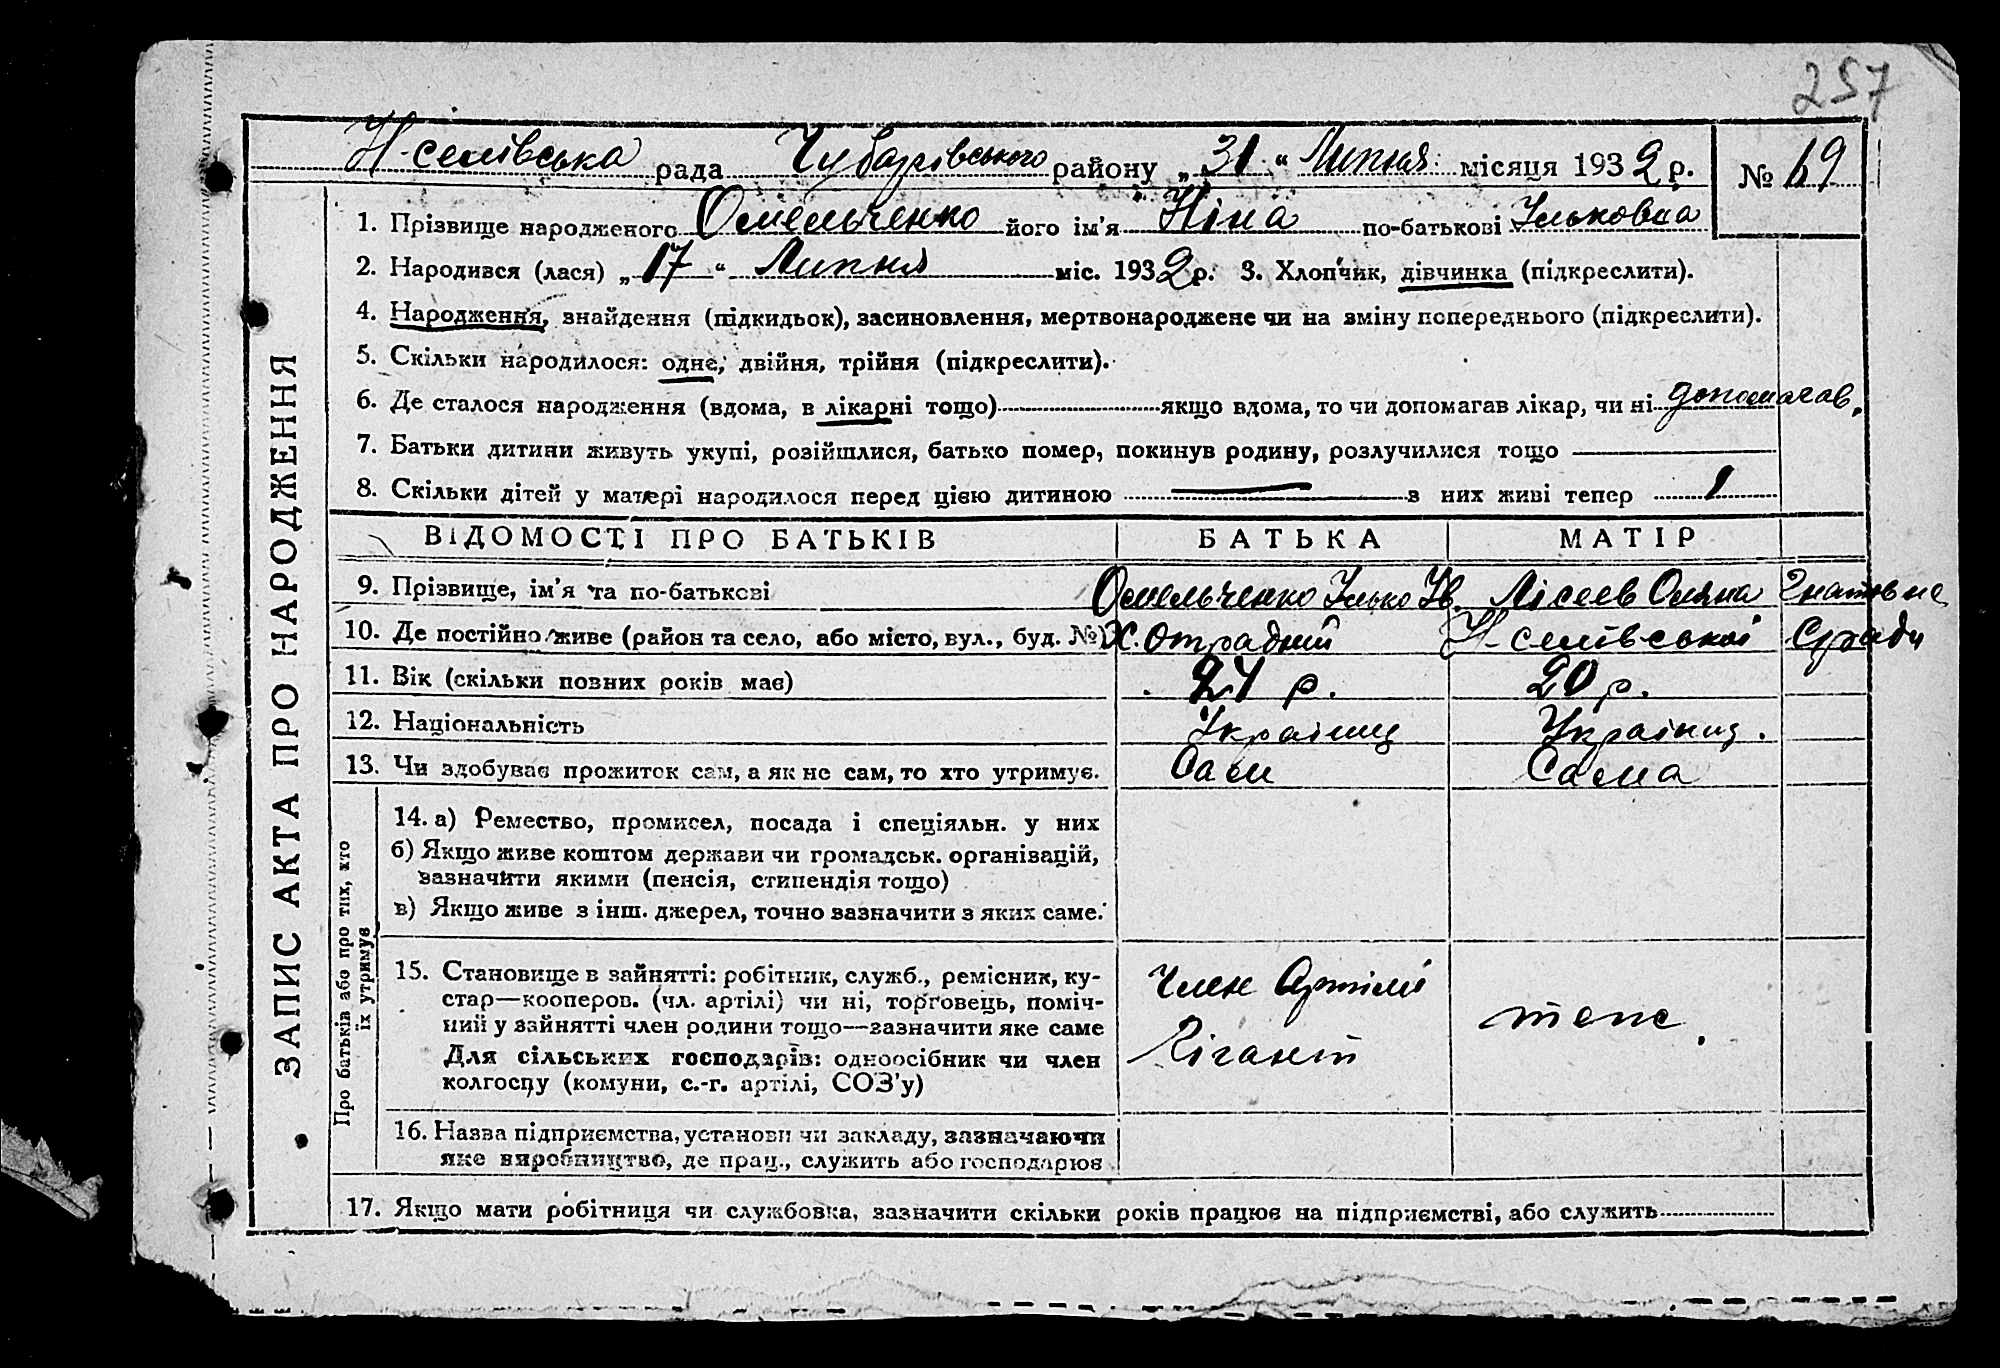 257
Н-селівська рада Чубарівського району „31“ Липня місяця 1932 р. № 69
1. Прізвище народженого Омельченко його ім'я Ніна по-батькові Ільковна
2. Народився (лася) „17“ Липня міс. 1932 р. 3. Хлопчик, дівчинка (підкреслити).
4. Народження, знайдення (підкидьок), засиновлення, мертвонароджене чи на зміну попереднього (підкреслити).
5. Скільки народилося: одне, двійня, трійня (підкреслити).
6. Де сталося народження (вдома, в лікарні тощо) якщо вдома, то чи допомагав лікар, чи ні допомагав.
7. Батьки дитини живуть укупі, розійшлися, батько помер, покинув родину, розлучилися тощо —
8. Скільки дітей у матері народилося перед цією дитиною — з них живі тепер 1
ЗАПИС АКТА ПРО НАРОДЖЕННЯ
ВІДОМОСТІ ПРО БАТЬКІВ БАТЬКА МАТІР
9. Прізвище, ім'я та по-батькові Омельченко Ілько Ів. Лісеев Оляна Гнатовне
10. Де постійно живе (район та село, або місто, вул., буд. №) Х. Отрадний Н-селівської С/ради
11. Вік (скільки повних років має) 24 р. 20 р.
12. Національність Україниц Україниц.
13. Чи здобуває прожиток сам, а як не сам, то хто утримує. Сам Сама
Про батьків або про тих, хто
їх утримує
14. а) Ремество, промисел, посада і спеціяльн. у них
б) Якщо живе коштом держави чи громадськ. організацій,
зазначити якими (пенсія, стипендія тощо)
в) Якщо живе з інш. джерел, точно зазначити з яких саме.
15. Становище в зайнятті: робітник, служб., ремісник, ку-
стар—кооперов. (чл. артілі) чи ні, торговець, поміч-
ний у зайнятті член родини тощо—зазначити яке саме
Для сільських господарів: одноосібник чи член
колгоспу (комуни, с.-г. артілі, СОЗ'у)
Член Артілі
Гігант
теж
16. Назва підприємства, установи чи закладу, зазначаючи
яке виробництво, де прац., служить або господарює
17. Якщо мати робітниця чи службовка, зазначити скільки років працює на підприємстві, або служить